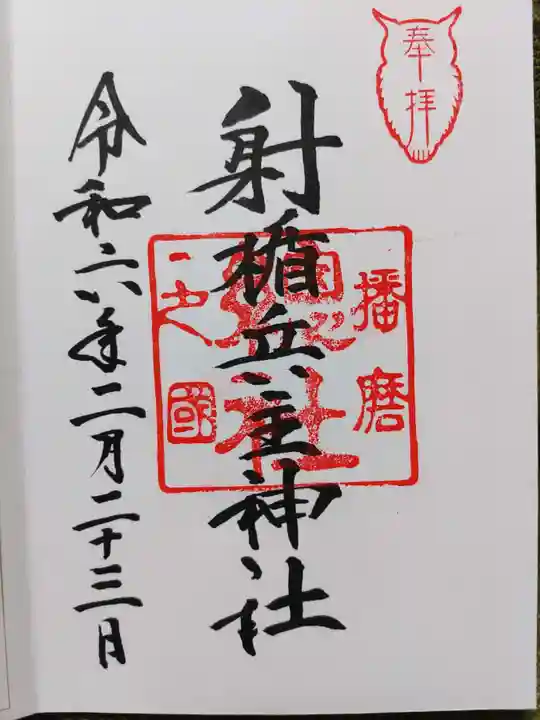 奉拝
射楯兵主神社
播磨
総社
之國
令和六年二月二十三日